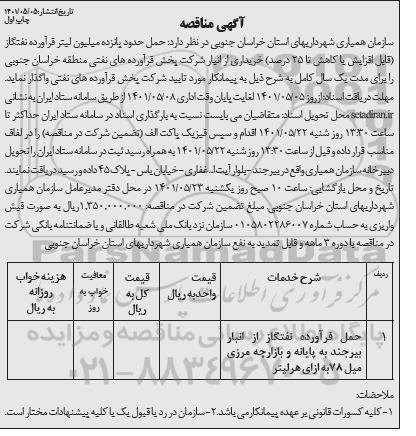 تاریخ انتشار: ۱۴۰۱/۰۵/۰۵
چاپ اول
آگهی مناقصه
سازمان همیاری شهرداریهای استان خراسان جنوبی در نظر دارد: حمل حدود پانزده میلیون لیتر فرآورده نفتگاز
(قابل افزایش یا کاهش تا ۲۵ درصد) خریداری از انبار شرکت پخش فرآورده های نفتی منطقه خراسان جنوبی
را برای مدت یک سال کامل به شرح ذیل به پیمانکار مورد تایید شرکت پخش فرآورده های نفتی واگذار نماید.
مهلت دریافت اسناد: از روز ۱۴۰۱/۰۵/۰۵ لغایت پایان وقت اداری ۱۴۰۱/۰۵/۰۸ از طریق سامانه ستاد ایران به نشانی
setadiran.ir محل تحویل اسناد: متقاضیان می بایست نسبت به بارگذاری اسناد در سامانه ستاد ایران حداکثر تا
ساعت ۱۳:۳۰ روز شنبه ۱۴۰۱/۰۵/۲۲ اقدام و سپس فیزیک پاکت الف (تضمین شرکت در مناقصه) را در لفاف
مناسب قرار داده و قبل از ساعت ۱۳:۳۰ روز شنبه ۱۴۰۱/۰۵/۲۲ به همراه رسید ثبت در سامانه ستاد ایران را تحویل
دبیرخانه سازمان همیاری واقع در بیرجند-بلوار آیت ا... غفاری -خیابان یاس - پلاک ۴۵ داده و رسید دریافت نمایند.
تاریخ و محل بازگشایی: ساعت ۱۰ صبح روز یکشنبه ۱۴۰۱/۰۵/۲۳ در محل دفتر مدیرعامل سازمان همیاری
شهرداریهای استان خراسان جنوبی. مبلغ تضمین شرکت در مناقصه: ۱,۳۵۰,۰۰۰,۰۰۰ ریال به صورت فیش
واریزی به حساب شماره ۰۱۰۵۸۰۲۲۸۶۰۰۷ سازمان نزد بانک ملی شعبه طالقانی و یا ضمانتنامه بانکی شرکت
در مناقصه با دوره ۳ ماهه و قابل تمدید به نفع سازمان همیاری شهرداریهای استان خراسان جنوبی
ردیف
شرح خدمات
قیمت واحد به ریال
قیمت کل به ریال
معافیت خواب به روز
هزینه خواب روزانه به ریال
۱
حمل فرآورده نفتگاز از انبار
بیرجند به پایانه و بازارچه مرزی
میل ۷۸ به ازای هر لیتر
ملاحضات:
۱- کلیه کسورات قانونی بر عهده پیمانکار می باشد. ۲- سازمان در رد یا قبول یک یا کلیه پیشنهادات مختار است.
ParsNamadData
پایگاه اطلاع رسانی مناقصه و مزایده
۰۲۱-۸۸۳۴۹۶۷۰-۵